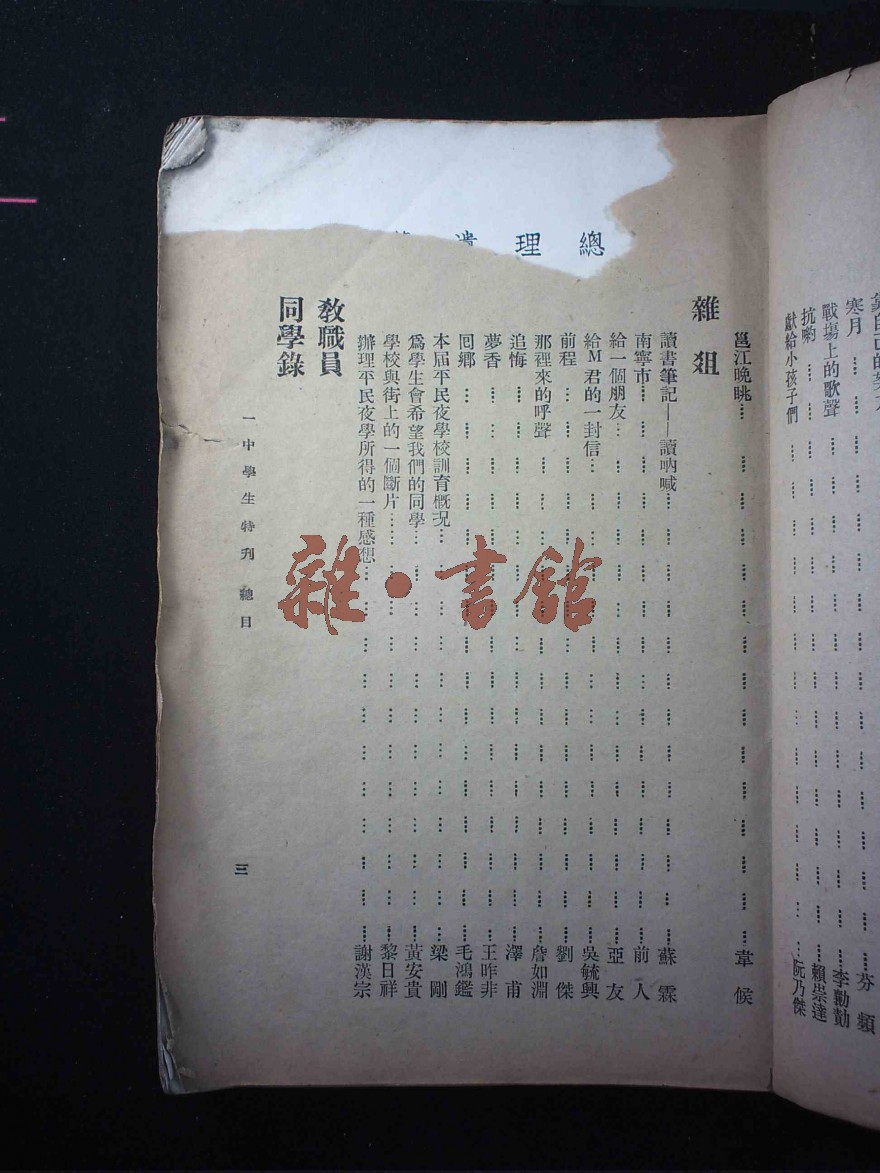 寒月 芬頻
戰場上的歌聲 李勷勣
抗喲 賴崇達
獻給小孩子們 阮乃傑
邕江晚眺 韋候
雜俎
讀書筆記——讀吶喊 蘇霖
南寧市 前人
給一個朋友 亞友
給M君的一封信 吳毓興
前程 劉傑
那裡來的呼聲 詹如淵
追悔 澤甫
夢香 王昨非
回鄉 毛鴻鑑
本屆平民夜學校訓育概况 梁剛
爲學生會希望我們的同學 黃安貴
學校與街上的一個斷片 黎日祥
辦理平民夜學所得的一種感想 謝漢宗
教職員
同學錄
一中學生特刊 總目 三
總理遺
雜·書館